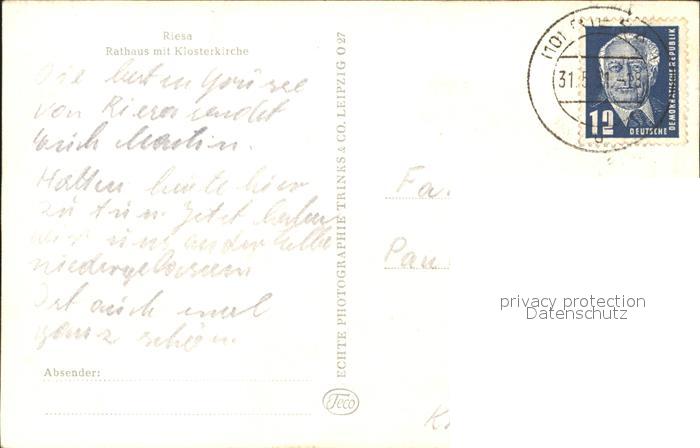 Riesa
Rathaus mit Klosterkirche
Die besten Grüsse
von Riesa sendet
Euch Martin.
Hatten heute hier
zu tun Jetzt haben
wir uns an der Elbe
niedergelassen
Ist auch mal
ganz schön
Absender:
ECHTE PHOTOGRAPHIE TRINKS & CO. LEIPZIG O 27
Teco
(10)
31.5.
12
DEUTSCHE
DEMOKRATISCHE REPUBLIK
Fa.
Pau
privacy protection
Datenschutz
K